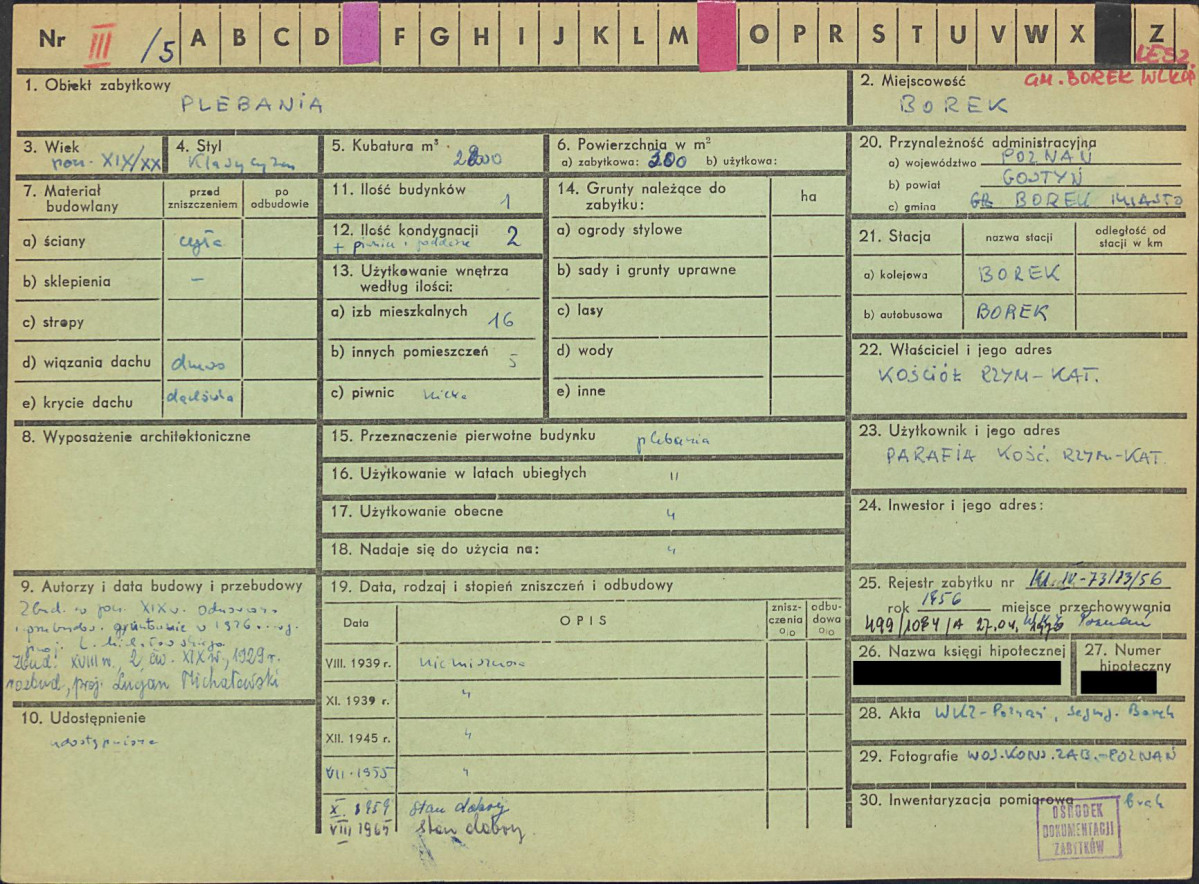 Nr III /5 A B C D F G H I J K L M O P R S T U V W X Z
LESZ.
GM. BOREK WLKP
1. Obiekt zabytkowy
PLEBANIA
2. Miejscowość
BOREK
3. Wiek
XIX/XX
4. Styl
Klasycyzm
5. Kubatura m³
2800
6. Powierzchnia w m²
a) zabytkowa: 280 b) użytkowa:
7. Materiał budowlany
przed zniszczeniem
po odbudowie
a) ściany cegła
b) sklepienia –
c) stropy
d) wiązania dachu drewno
e) krycie dachu dachówka
8. Wyposażenie architektoniczne
9. Autorzy i data budowy i przebudowy
Zbud. w pocz. XIX w.
i przebudow. gruntownie w 1926
zbud. XVIII w., 2 ćw. XIX w., 1929 r.
rozbud, proj. Lucjan Michałowski
10. Udostępnienie
udostępnione
11. Ilość budynków
1
12. Ilość kondygnacji 2
+ piwnice i poddasze
13. Użytkowanie wnętrza
według ilości:
a) izb mieszkalnych
16
b) innych pomieszczeń
5
c) piwnic kilka
14. Grunty należące do
zabytku:
ha
a) ogrody stylowe
b) sady i grunty uprawne
c) lasy
d) wody
e) inne
15. Przeznaczenie pierwotne budynku plebania
16. Użytkowanie w latach ubiegłych "
17. Użytkowanie obecne "
18. Nadaje się do użycia na: "
19. Data, rodzaj i stopień zniszczeń i odbudowy
Data
OPIS
znisz-
czenia
o/o
odbu-
dowa
o/o
VIII. 1939 r. nie niszczona
XI. 1939 r. "
XII. 1945 r. "
VII - 1955 "
X. 1959 Stan dobry
VIII 1965 Stan dobry
20. Przynależność administracyjna
a) województwo POZNAŃ
b) powiat GOSTYŃ
c) gmina BOREK MIASTO
21. Stacja
nazwa stacji
odległość od
stacji w km
a) kolejowa BOREK
b) autobusowa BOREK
22. Właściciel i jego adres
KOŚCIÓŁ RZYM-KAT.
23. Użytkownik i jego adres
PARAFIA KOŚC. RZYM-KAT.
24. Inwestor i jego adres:
25. Rejestr zabytku nr Kl. IV-73/73/56
rok 1956 miejsce przechowywania
499/1084/A 27.04. Poznań
26. Nazwa księgi hipotecznej
27. Numer
hipoteczny
28. Akta WKZ-Poznań, Borek
29. Fotografie WOJ. KONS. ZAB.-POZNAŃ
30. Inwentaryzacja pomiarowa brak
OŚRODEK
DOKUMENTACJI
ZABYTKÓW